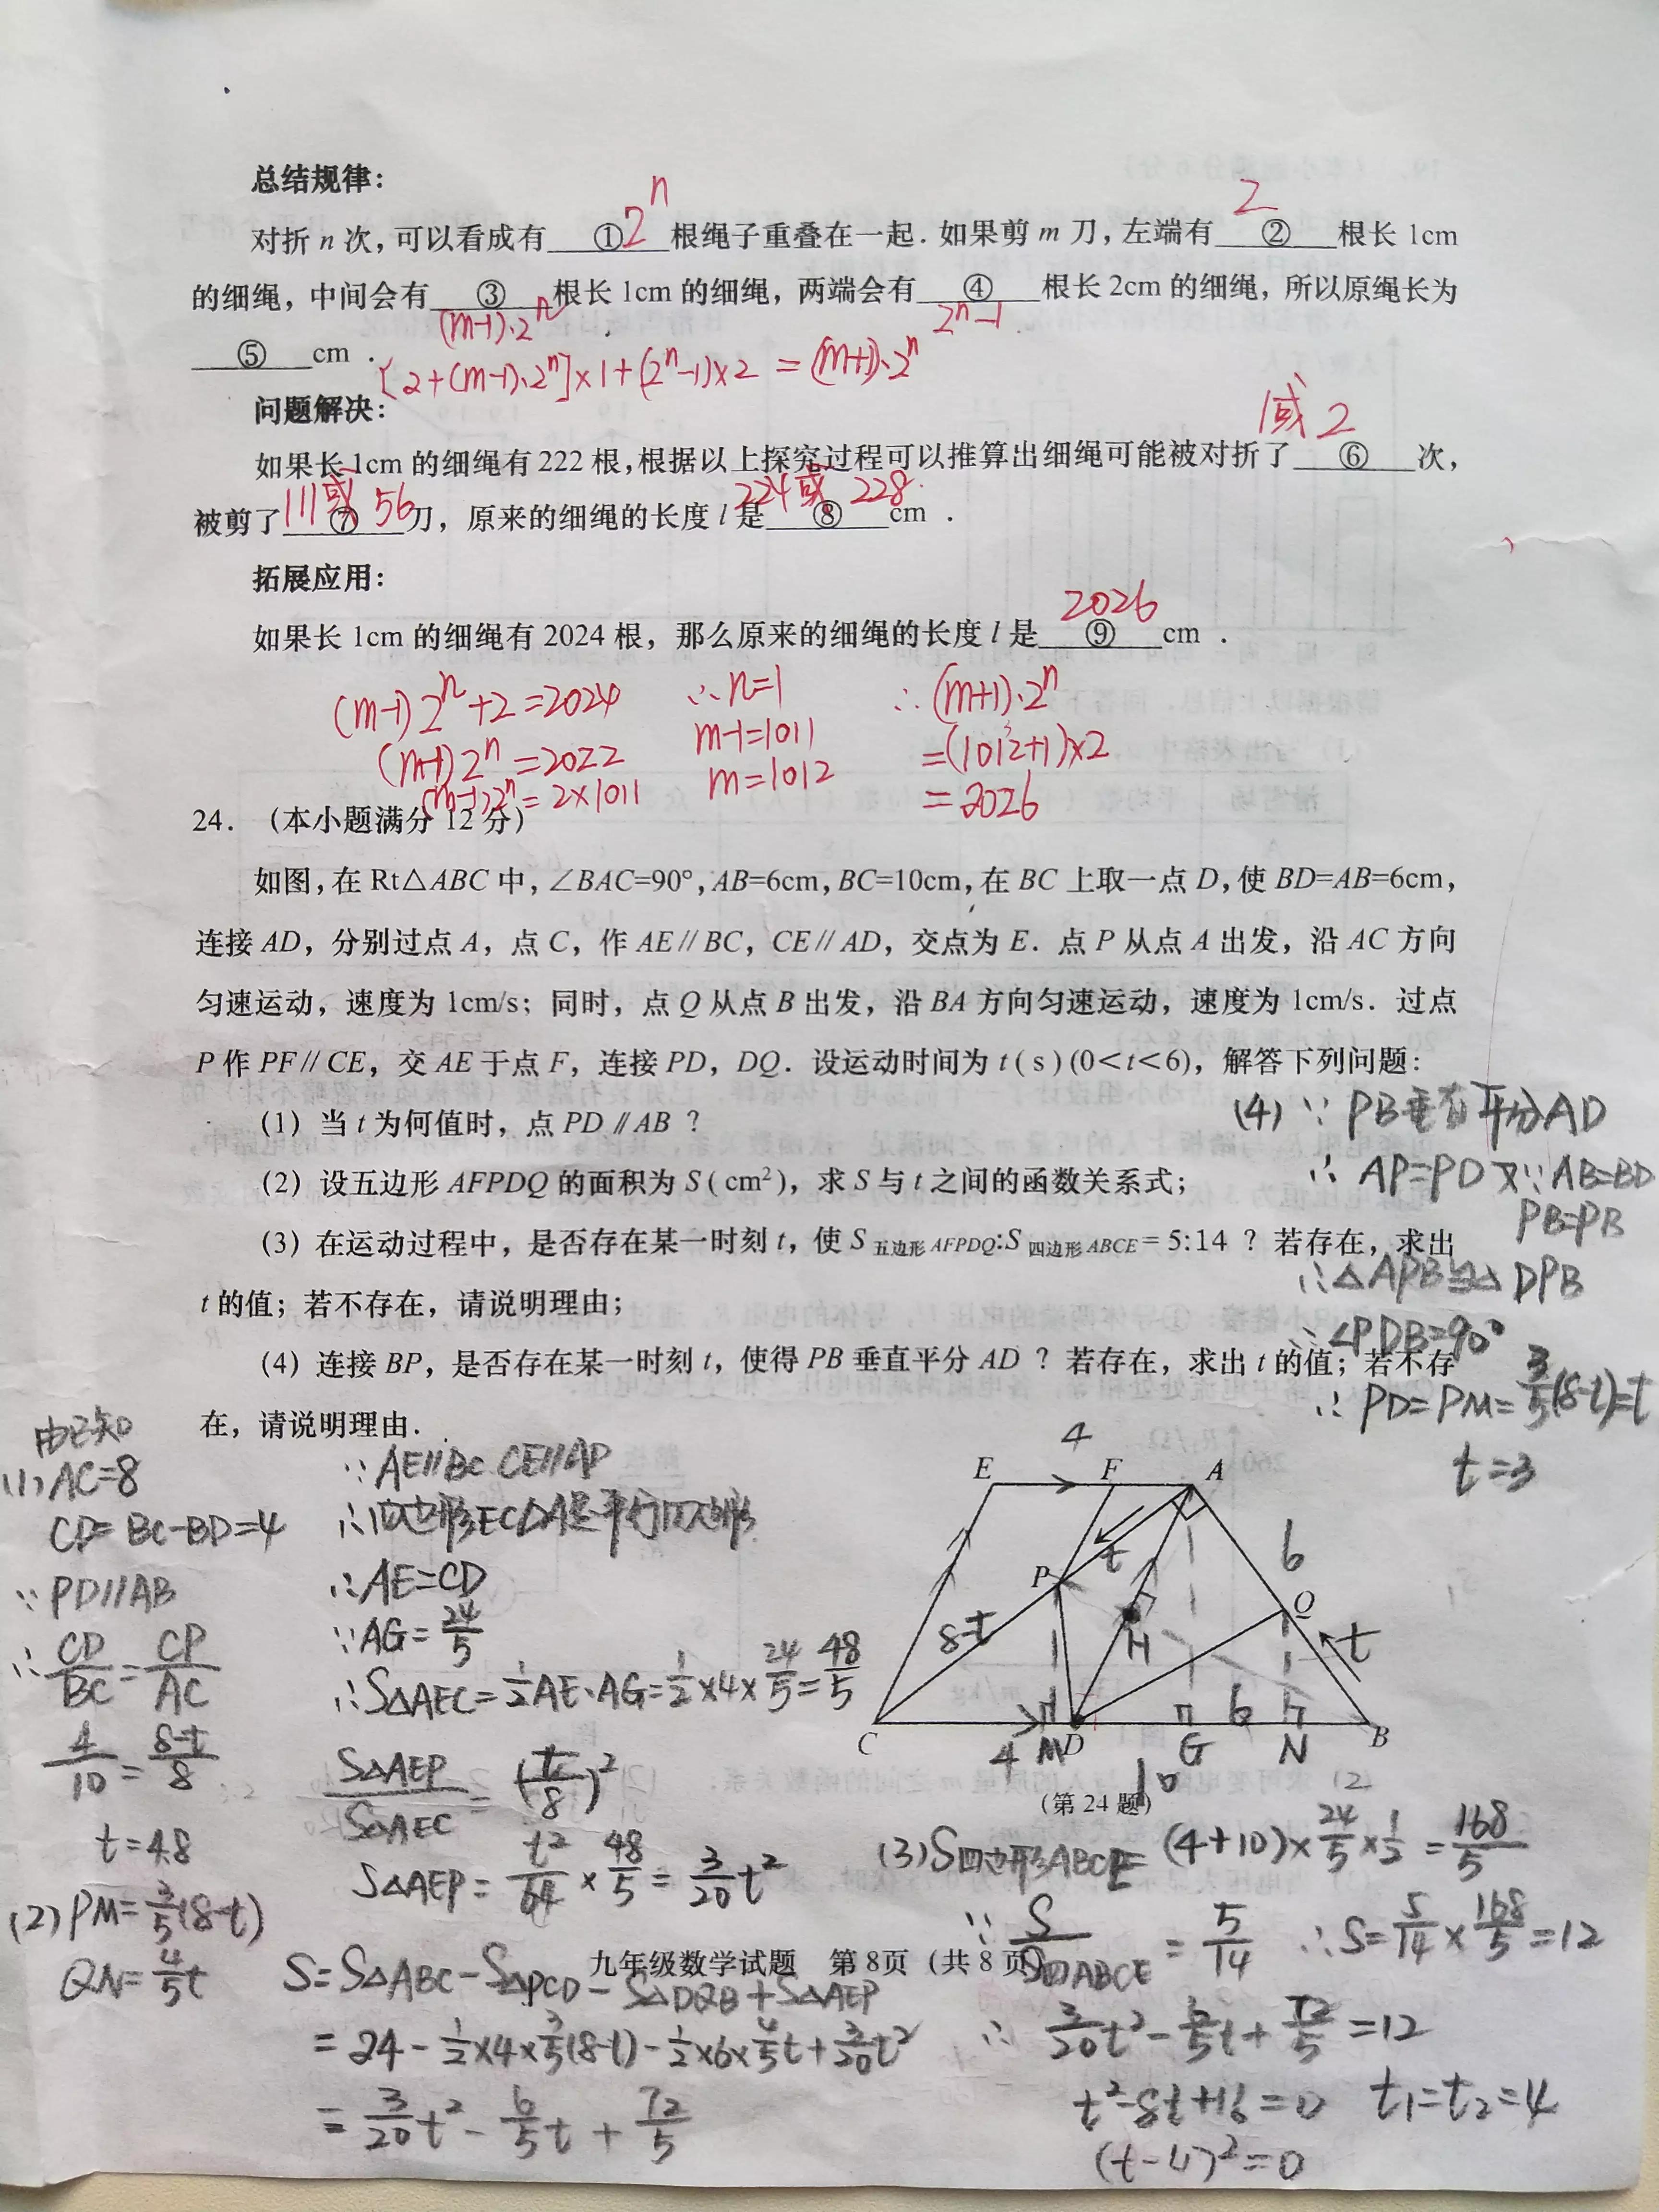 总结规律：
对折 n 次，可以看成有 ① 2ⁿ 根绳子重叠在一起．如果剪 m 刀，左端有 ② 2 根长 1cm
的细绳，中间会有 ③ (m-1)·2ⁿ 根长 1cm 的细绳，两端会有 ④ 2ⁿ-1 根长 2cm 的细绳，所以原绳长为
⑤ cm ．
[2+(m-1)·2ⁿ]×1+(2ⁿ-1)×2 = (m+1)·2ⁿ
问题解决：
如果长 1cm 的细绳有 222 根，根据以上探究过程可以推算出细绳可能被对折了 ⑥ 1或2 次，
被剪了 ⑦ 111或56 刀，原来的细绳的长度 l 是 ⑧ 224或 228 cm ．
拓展应用：
如果长 1cm 的细绳有 2024 根，那么原来的细绳的长度 l 是 ⑨ 2026 cm ．
(m-1)2ⁿ+2=2024
(m-1)2ⁿ=2022
(m-1)2ⁿ=2×1011
∴n=1
m-1=1011
m=1012
∴(m+1)·2ⁿ
=(1012+1)×2
=2026
24．（本小题满分 12 分）
如图，在 Rt△ABC 中，∠BAC=90°，AB=6cm，BC=10cm，在 BC 上取一点 D，使 BD=AB=6cm，
连接 AD，分别过点 A，点 C，作 AE∥BC，CE∥AD，交点为 E．点 P 从点 A 出发，沿 AC 方向
匀速运动，速度为 1cm/s；同时，点 Q 从点 B 出发，沿 BA 方向匀速运动，速度为 1cm/s．过点
P 作 PF∥CE，交 AE 于点 F，连接 PD，DQ．设运动时间为 t(s)(0<t<6)，解答下列问题：
（1）当 t 为何值时，点 PD∥AB？
（2）设五边形 AFPDQ 的面积为 S(cm²)，求 S 与 t 之间的函数关系式；
（3）在运动过程中，是否存在某一时刻 t，使 S五边形AFPDQ:S四边形ABCE=5:14？若存在，求出
t 的值；若不存在，请说明理由；
（4）连接 BP，是否存在某一时刻 t，使得 PB 垂直平分 AD？若存在，求出 t 的值；若不存
在，请说明理由．
(4) ∵PB垂直平分AD
∴AP=PD 又∵AB=BD
PB=PB
∴△APB≌△DPB
∴∠PDB=90°
∴PD=PM=3/5(8-t)=t
t=3
由已知
(1) AC=8
CD=BC-BD=4
∵PD//AB
∴CD/BC=CP/AC
4/10=(8-t)/8
t=4.8
(2) PM=3/5(8-t)
QN=4/5t
∵AE//BC CE//AD
∴四边形ECDA是平行四边形
∴AE=CD
∵AG=24/5
∴S△AEC=1/2AE·AG=1/2×4×24/5=48/5
S△AEP/S△AEC=(t/8)²
S△AEP=t²/64×48/5=3/20t²
S=S△ABC-S△PCD-S△DQB+S△AEP
=24-1/2×4×3/5(8-t)-1/2×6×4/5t+3/20t²
=3/20t²-6/5t+72/5
E F A
4
P
t
6
Q
t
8-t
H
C
4
M
D
G
6
N
B
10
（第 24 题）
(3) S四边形ABCE=(4+10)×24/5×1/2=168/5
∵S/S四ABCE=5/14 ∴S=5/14×168/5=12
∴3/20t²-6/5t+72/5=12
t²-8t+16=0 t₁=t₂=4
(t-4)²=0
九年级数学试题 第8页（共 8 页）